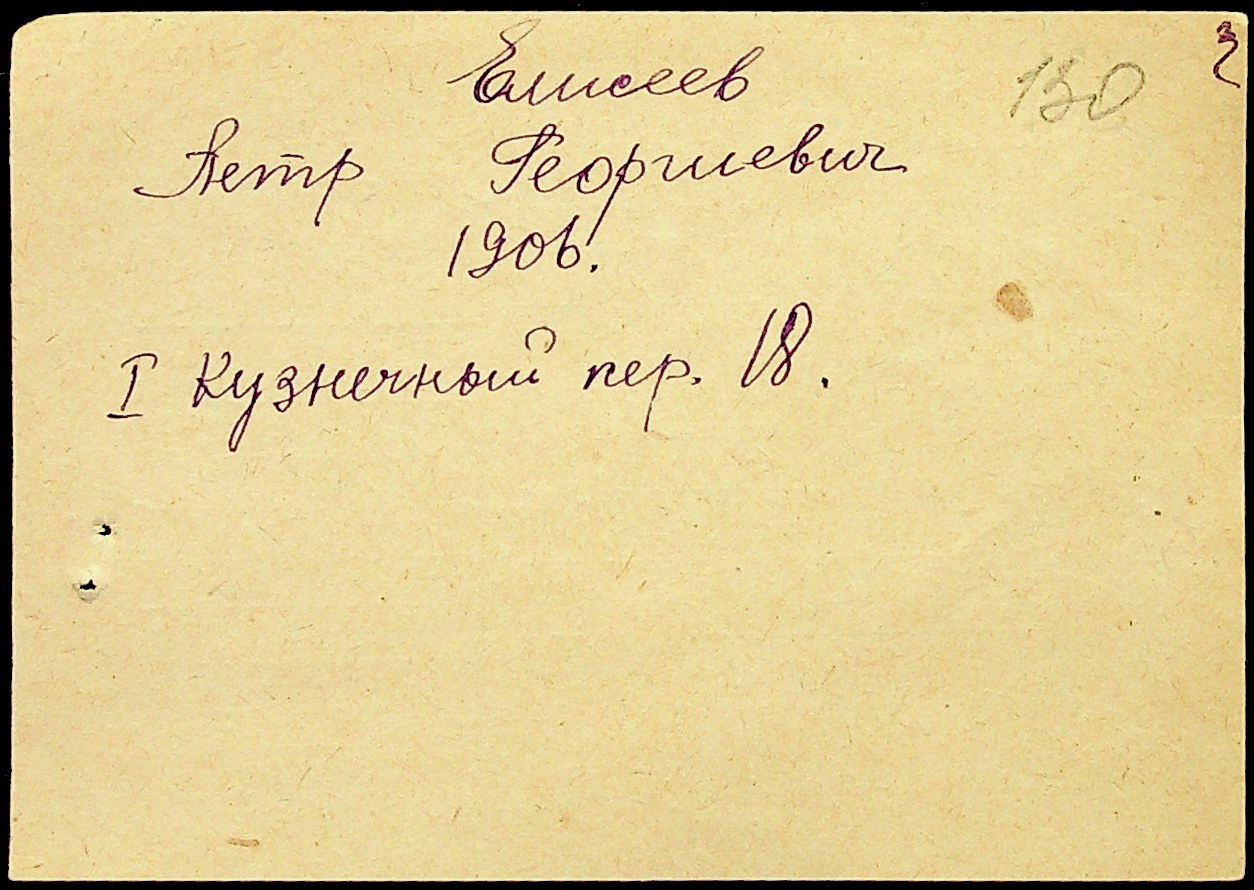 Елисеев
130
Петр Георгиевич
1906.
I Кузнечный пер. 18.